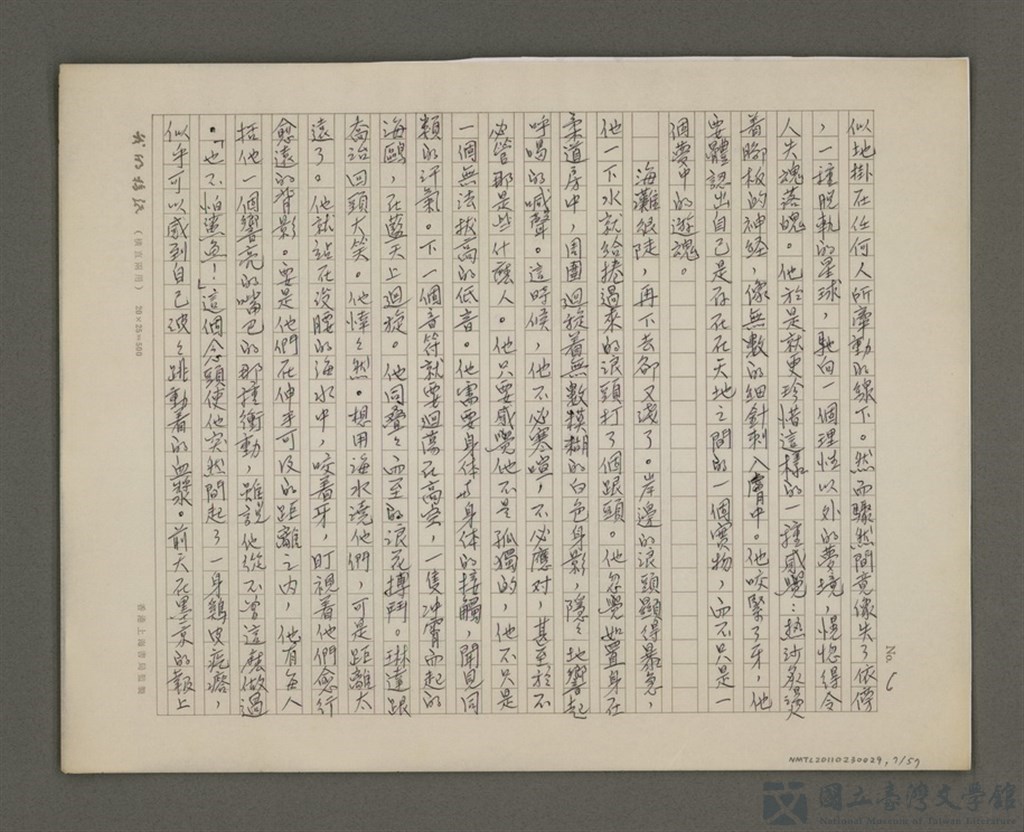 No. 6
似地掛在任何人所牽動的線下。然而驟然間竟像失了依傍
，一種脫軌的星球，馳向一個理性以外的夢境，恍惚得令
人失魂落魄。他於是就更珍惜這樣的一種感覺：熱沙炙燙
着腳板的神経，像無數的細針刺入膚中。他咬緊了牙，他
要體認出自己是存在在天地之間的一個實物，而不只是一
個夢中的遊魂。
海灘很陡，再下去卻又淺了。岸邊的浪頭顯得暴急，
他一下水就給捲過來的浪頭打了個跟頭。他忽覺如置身在
柔道房中，周圍迴旋着無數模糊的白色身影，隱々地響起
呼喝的喊聲。這時候，他不必寒喧，不必應对，甚至於不
必管那是些什麼人。他只要感覺他不是孤獨的，他不只是
一個無法拔高的低音。他需要身体与身体的接觸，聞見同
類的汗氣。下一個音符就要迴蕩在高空，一隻冲霄而起的
海鷗，在藍天上迴旋。他同叠々而至的浪花搏鬥。琳達跟
喬治回頭大笑。他悻々然。想用海水澆他們，可是距離太
遠了。他就站在沒腰的海水中，咬着牙，盯視着他們愈行
愈遠的背影。要是他們在伸手可及的距離之內，他有每人
括他一個響亮的嘴巴的那種衝動，雖說他從不曾這麼做過
。「也不怕鯊魚！」這個念頭使他突然間起了一身鷄皮疙瘩，
似乎可以感到自己波々跳動着的血漿。前天在黑京的報上
我的稿紙 （橫直两用） 20×25=500
香港上海書局監製
NMTL20110230029, 7/57
國立臺灣文學館
National Museum of Taiwan Literature